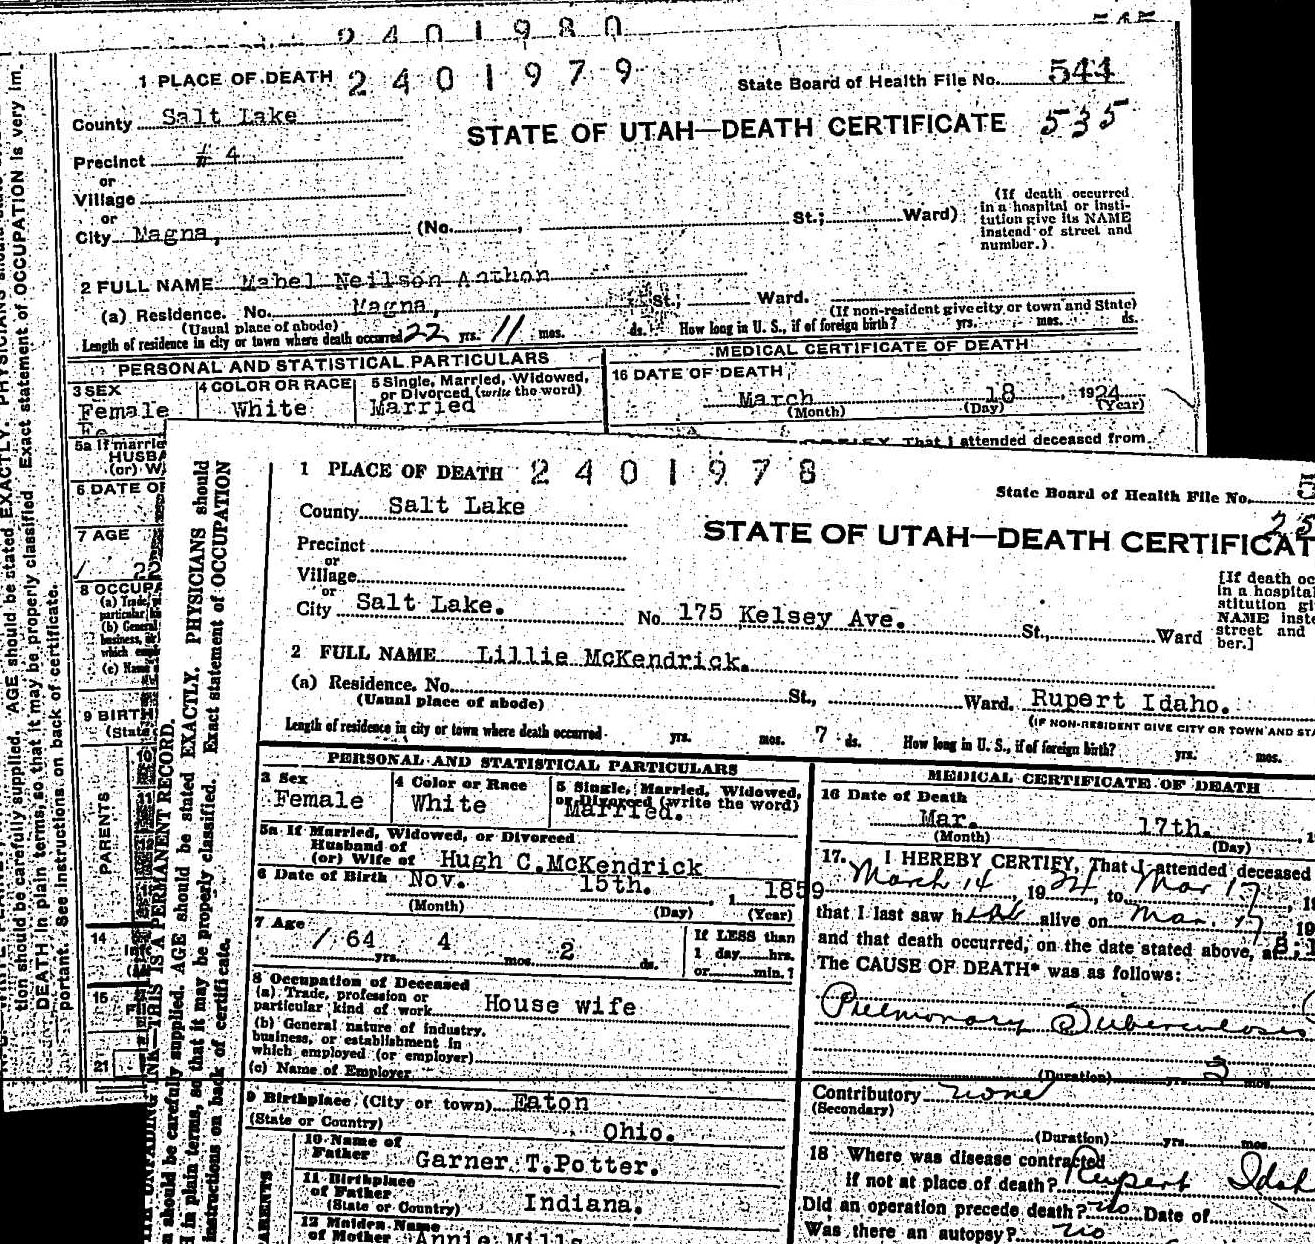 2401980
1 PLACE OF DEATH 2401979
State Board of Health File No. 544
County Salt Lake
STATE OF UTAH—DEATH CERTIFICATE 535
Precinct # 4
or
Village
or
City Magna,
(No. , St.; Ward)
(If death occurred
in a hospital or insti-
tution give its NAME
instead of street and
number.)
2 FULL NAME Mabel Neilson Anthon
(a) Residence. No. Magna, St.; Ward.
(Usual place of abode)
(If non-resident give city or town and State)
Length of residence in city or town where death occurred 22 yrs. 11 mos. ds. How long in U. S., if of foreign birth? yrs. mos. ds.
PERSONAL AND STATISTICAL PARTICULARS
MEDICAL CERTIFICATE OF DEATH
3 SEX
Female
4 COLOR OR RACE
White
5 Single, Married, Widowed,
or Divorced (write the word)
Married
16 DATE OF DEATH
March 18, 1924
(Month) (Day) (Year)
That I attended deceased from
5a If marrie
HUSBA
(or) W
6 DATE OF
7 AGE
8 OCCUPA
(a) Trade,
particular
(b) General
business,
which
(c) Nam
9 BIRTH
(State
PARENTS
14
15
21
tion should be carefully supplied. AGE should be stated EXACTLY. PHYSICIANS should state
DEATH in plain terms, so that it may be properly classified. Exact statement of OCCUPATION is very im-
portant. See instructions on back of certificate.
1 PLACE OF DEATH 2401978
State Board of Health File No.
County Salt Lake
STATE OF UTAH—DEATH CERTIFICAT
Precinct
or
Village
or
City Salt Lake. No. 175 Kelsey Ave. St., Ward
[If death oc
in a hospital
stitution gi
NAME inste
street and
ber.]
2 FULL NAME Lillie McKendrick.
(a) Residence. No. St., Ward. Rupert Idaho.
(Usual place of abode)
(IF NON-RESIDENT GIVE CITY OR TOWN AND STA
Length of residence in city or town where death occurred yrs. mos. 7 ds. How long in U. S., if of foreign birth? yrs. mos.
PERSONAL AND STATISTICAL PARTICULARS
MEDICAL CERTIFICATE OF DEATH
3 Sex
Female
4 Color or Race
White
5 Single, Married, Widowed,
or Divorced (write the word)
Married.
5a If Married, Widowed, or Divorced
Husband of
(or) Wife of Hugh C.McKendrick
6 Date of Birth Nov. 15th. , 1859
(Month) (Day) (Year)
7 Age
64 yrs. 4 mos. 2 ds.
If LESS than
1 day hrs.
or min.?
8 Occupation of Deceased
(a) Trade, profession or
particular kind of work House wife
(b) General nature of industry,
business, or establishment in
which employed (or employer)
(c) Name of Employer
9 Birthplace (City or town) Eaton
(State or Country) Ohio.
10 Name of
Father Garner T.Potter.
11 Birthplace
of Father
(State or Country) Indiana.
12 Maiden Name
of Mother Annie Mills
16 Date of Death
Mar. 17th.
(Month) (Day)
17. I HEREBY CERTIFY, That I attended deceased
March 14, 1924, to Mar 17, 19
that I last saw h alive on Mar. 17, 19
and that death occurred, on the date stated above, at 8
The CAUSE OF DEATH* was as follows:
Pulmonary Tuberculosis
(Duration) yrs. 3 mos.
Contributory none
(Secondary)
(Duration) yrs. mos.
18 Where was disease contracted
if not at place of death? Rupert Idah
Did an operation precede death? no Date of
Was there an autopsy? no
UNFADING INK—THIS IS A PERMANENT RECORD.
should be carefully supplied. AGE should be stated EXACTLY. PHYSICIANS should
in plain terms, so that it may be properly classified. Exact statement of OCCUPATION
instructions on back of certificate.